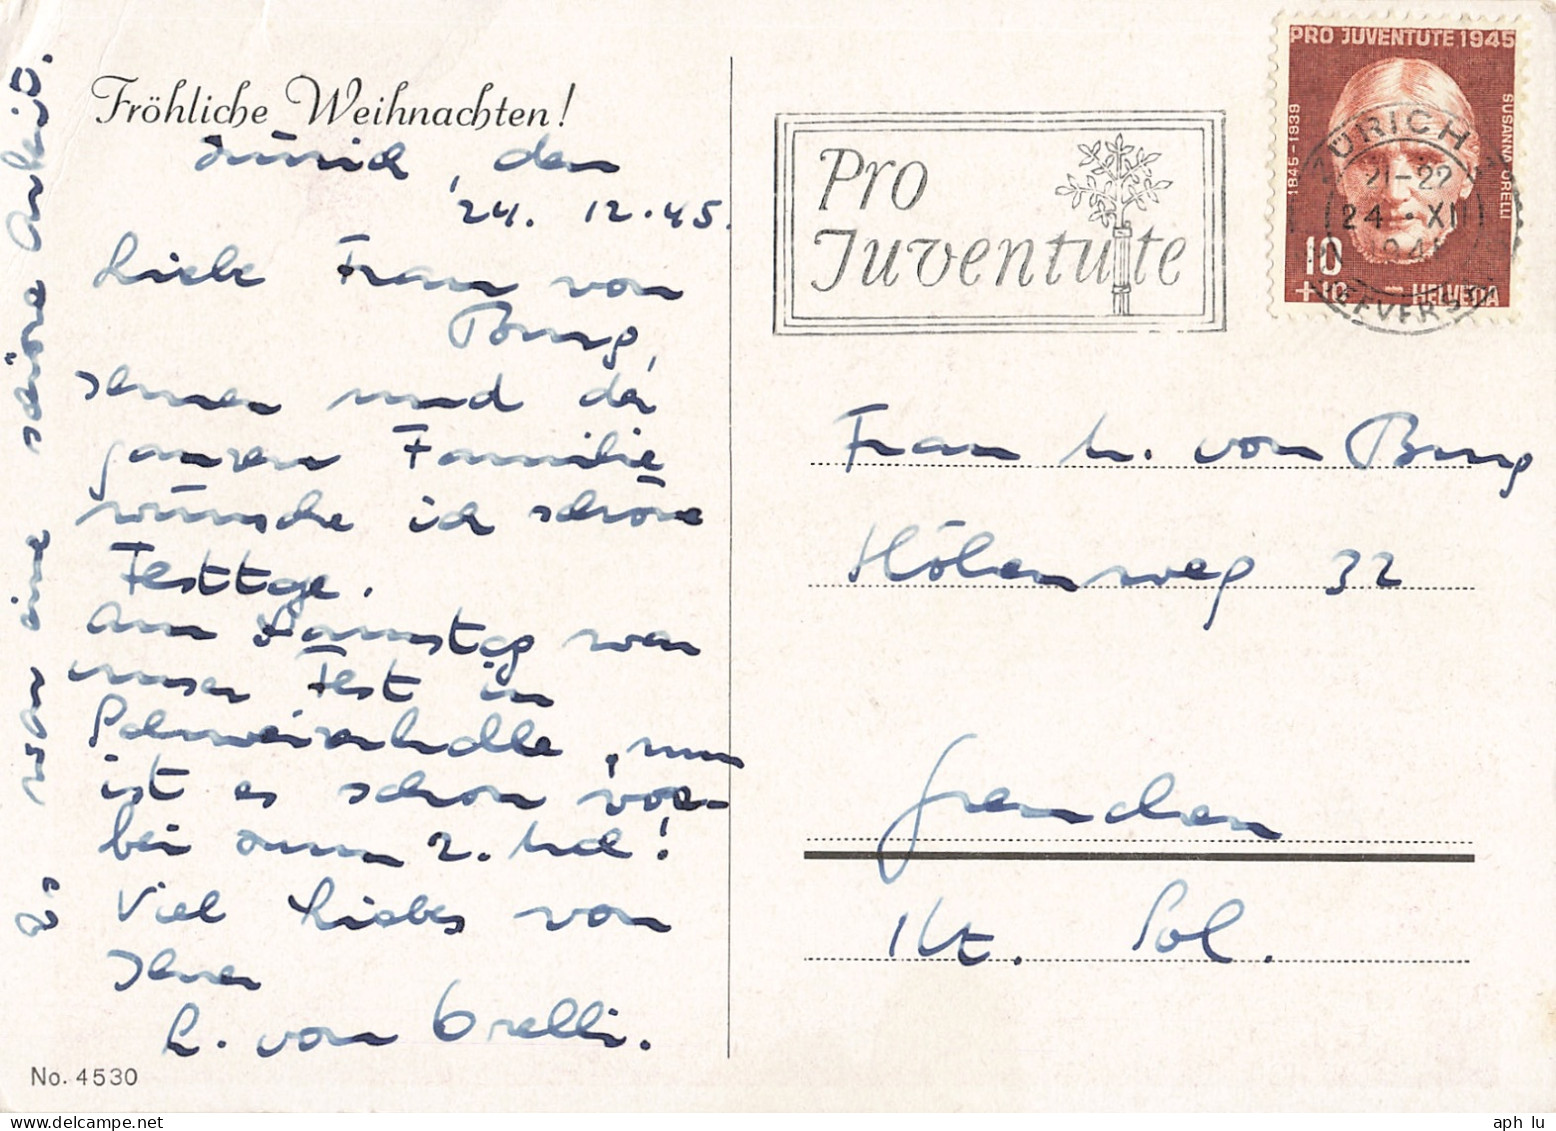 Fröhliche Weihnachten!
Zürich, den
24. 12. 45.
Liebe Frau von
Burg,
Ihnen und der
ganzen Familie
wünsche ich schöne
Festtage.
Am Samstag war
unser Fest in
Schweizerhalle, nun
ist es schon vor-
bei zum 2. Mal!
Viel Liebes von
Ihrer
L. von Orelli.
Es war eine schöne Arbeit.
No. 4530
Pro
Juventute
PRO JUVENTUTE 1945
1845-1939
SUSANNA ORELLI
10
+10
HELVETIA
ZÜRICH
21-22
24. XII
1945
Frau M. von Burg
Höhenweg 32
Grenchen
Kt. Sol.
aph lu